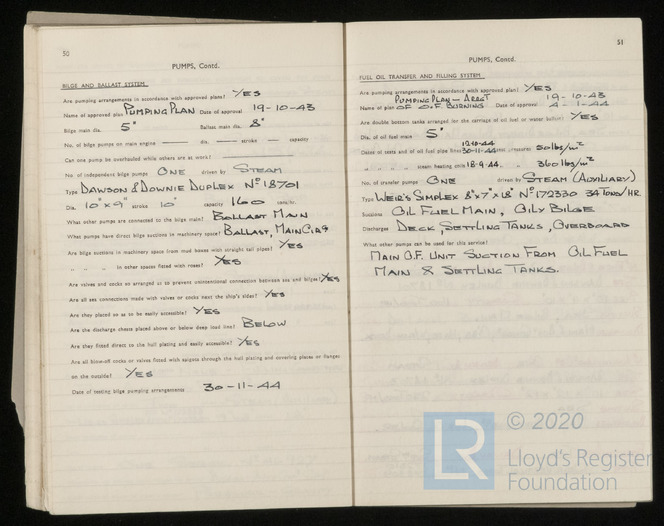 50
PUMPS, Contd.
BILGE AND BALLAST SYSTEM
Are pumping arrangements in accordance with approved plans? YES
Name of approved plan PUMPING PLAN Date of approval 19-10-43
Bilge main dia. 5" Ballast main dia. 8"
No. of bilge pumps on main engine — dia. — stroke — capacity
Can one pump be overhauled while others are at work? —
No. of independent bilge pumps ONE driven by STEAM
Type DAWSON & DOWNIE DUPLEX Nº 18701
Dia. 10" x 9" stroke 10" capacity 160 tons/hr.
What other pumps are connected to the bilge main? BALLAST MAIN
What pumps have direct bilge suctions in machinery space? BALLAST, MAIN CIRG
Are bilge suctions in machinery space from mud boxes with straight tail pipes? YES
" " " in other spaces fitted with roses? YES
Are valves and cocks so arranged as to prevent unintentional connection between sea and bilges? YES
Are all sea connections made with valves or cocks next the ship's sides? YES
Are they placed so as to be easily accessible? YES
Are the discharge chests placed above or below deep load line? BELOW
Are they fitted direct to the hull plating and easily accessible? YES
Are all blow-off cocks or valves fitted with spigots through the hull plating and covering plates or flanges
on the outside? YES
Date of testing bilge pumping arrangements 30-11-44
51
PUMPS, Contd.
FUEL OIL TRANSFER AND FILLING SYSTEM
Are pumping arrangements in accordance with approved plan? YES
PUMPING PLAN — ARRGT 19-10-43
Name of plan OF O.F. BURNING Date of approval 4-1-44
Are double bottom tanks arranged for the carriage of oil fuel or water ballast? YES
Dia. of oil fuel main 5"
12.10.44
Dates of tests and of oil fuel pipe lines 30-11-44 test pressures 50 lbs/in²
" " " " steam heating coils 18-9-44 " 360 lbs/in²
No. of transfer pumps ONE driven by STEAM (AUXILIARY)
Type WEIR'S SIMPLEX 8"x7"x18" Nº 172330 34 TONS/HR.
Suctions OIL FUEL MAIN, OILY BILGE
Discharges DECK, SETTLING TANKS, OVERBOARD
What other pumps can be used for this service?
MAIN O.F. UNIT SUCTION FROM OIL FUEL
MAIN & SETTLING TANKS.
© 2020
LR
Lloyd's Register
Foundation